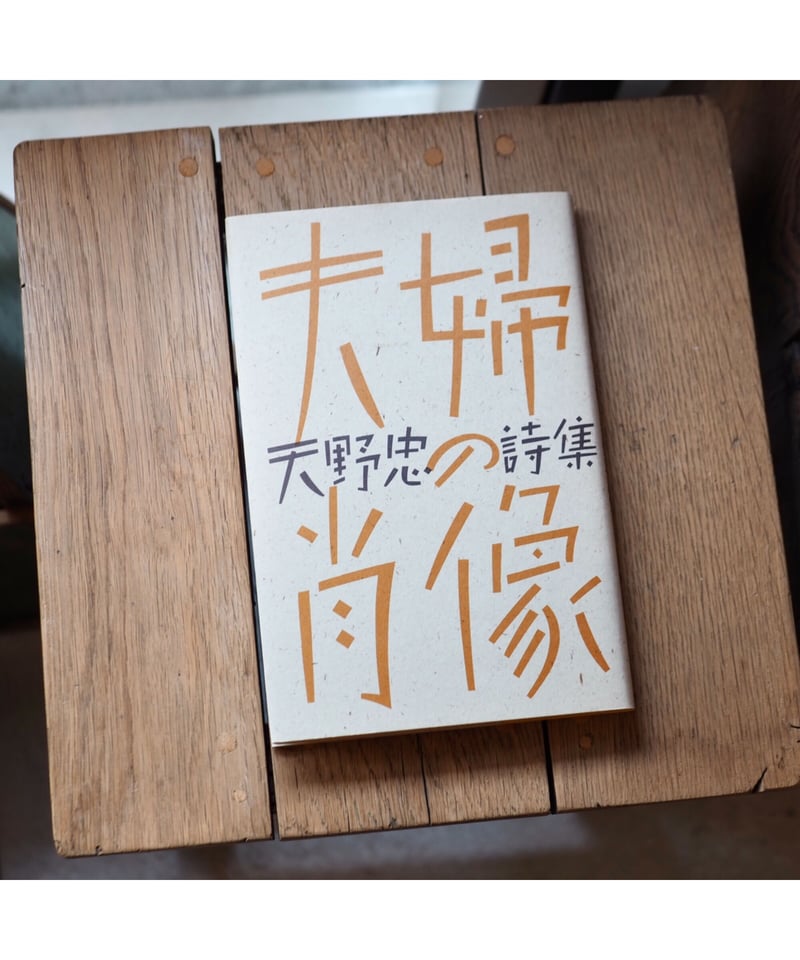 夫婦
天野忠の詩集
肖像